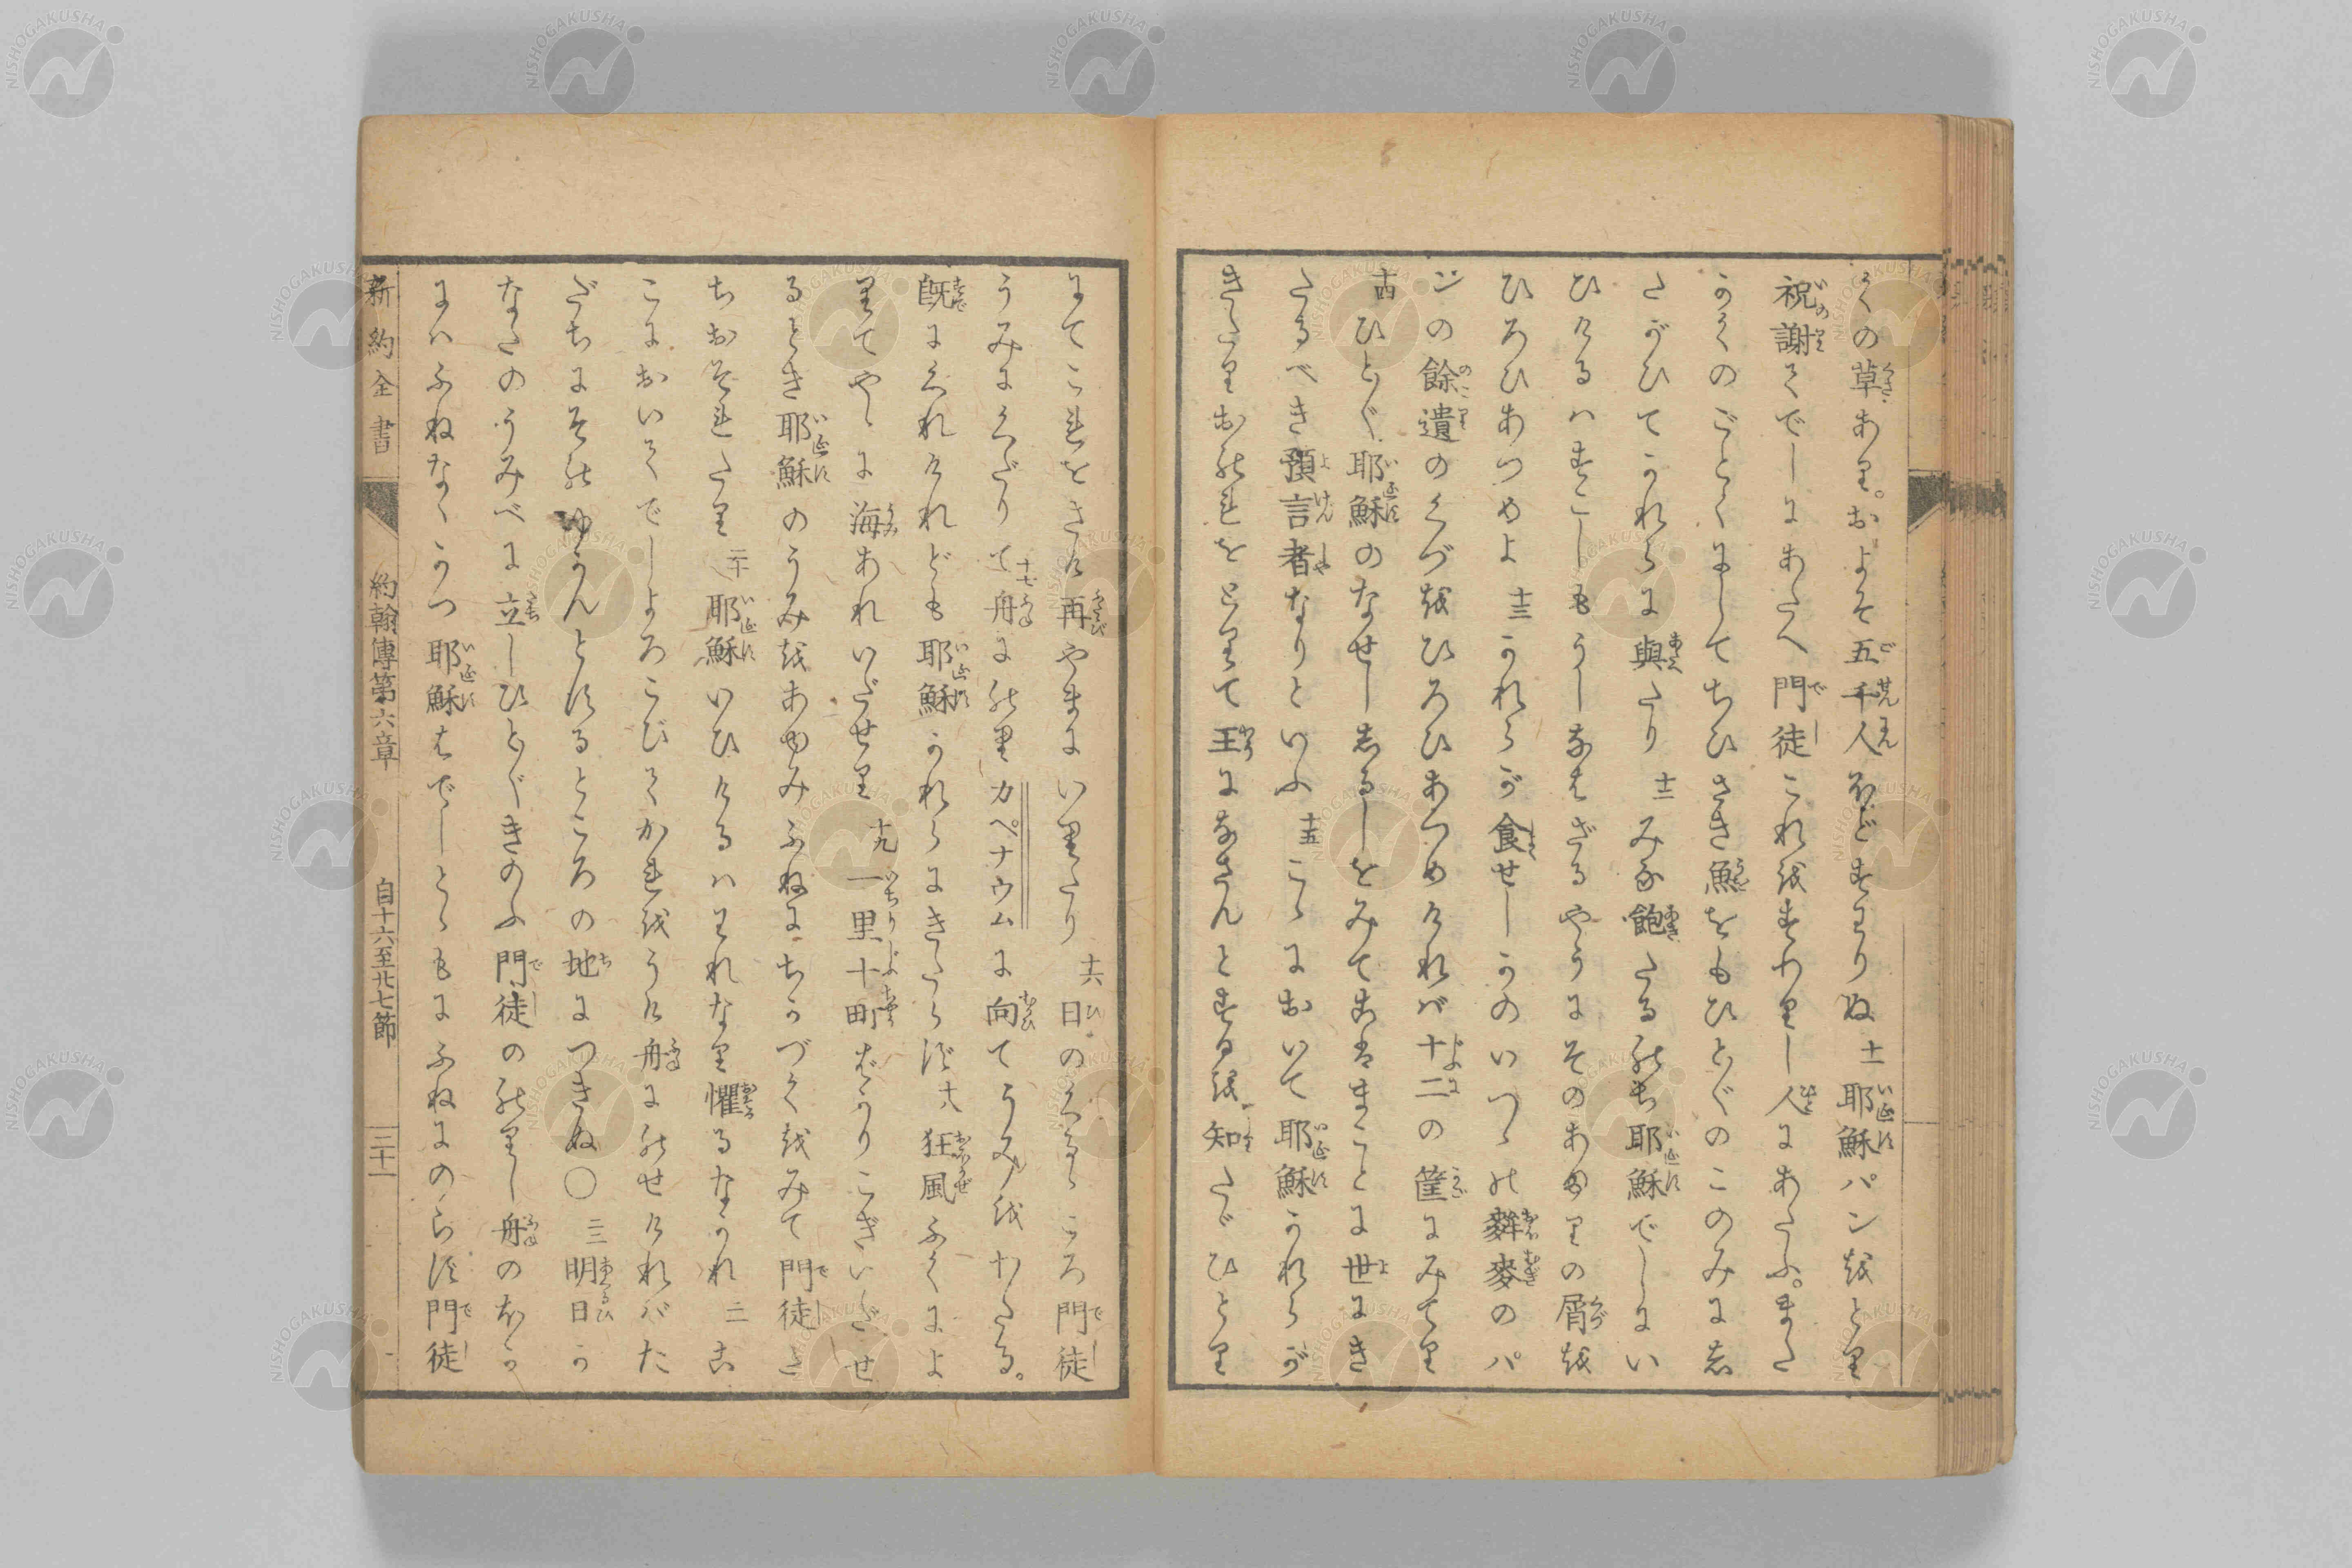 くの草あり。およそ五千人ほどすわりぬ 十一 耶穌パンをとり
祝謝てでしにあたへ門徒これをすわりし人にあたふ。また
かくのごとくにしてちひさき魚をもひとびとのこのみにし
たがひてかれらに與たり 十二 みな飽たるのち耶穌でしにい
ひけるハすこしもうしなはざるやうにそのあまりの屑を
ひろひあつめよ 十三 かれらが食せしかのいつゝの麰麥のパ
ンの餘遺のくづをひろひあつめけれバ十二の筐にみてり
十四 ひとびと耶穌のなせししるしをみてこはまことに世にき
たるべき預言者なりといふ 十五 こゝにおいて耶穌かれらが
きたりおのれをとりて王になさんとするを知たゞひとり
にてこれをさけ再やまにいりたり 十六 日のくるゝころ門徒
うみにくだりて 十七 舟にのりカペナウムに向てうみをわたる。
既にくれけれども耶穌かれらにきたらず 十八 狂風ふくによ
りてやゝに海あれいだせり 十九 一里十町ばかりこぎいだせ
るとき耶穌のうみをあゆみふねにちかづくをみて門徒た
ちおそれたり 二十 耶穌いひけるハわれなり懼るなかれ 二一 こ
こにおいてでしよろこびてかれをうけ舟にのせけれバた
だちにそのゆかんとするところの地につきぬ〇 二二 明日か
なたのうみべに立しひとびときのふ門徒ののりし舟のほか
にハふねなくかつ耶穌はでしとゝもにふねにのらず門徒
新約全書 約翰傳第六章 自十六至廿七節 三十一
NISHOGAKUSHA